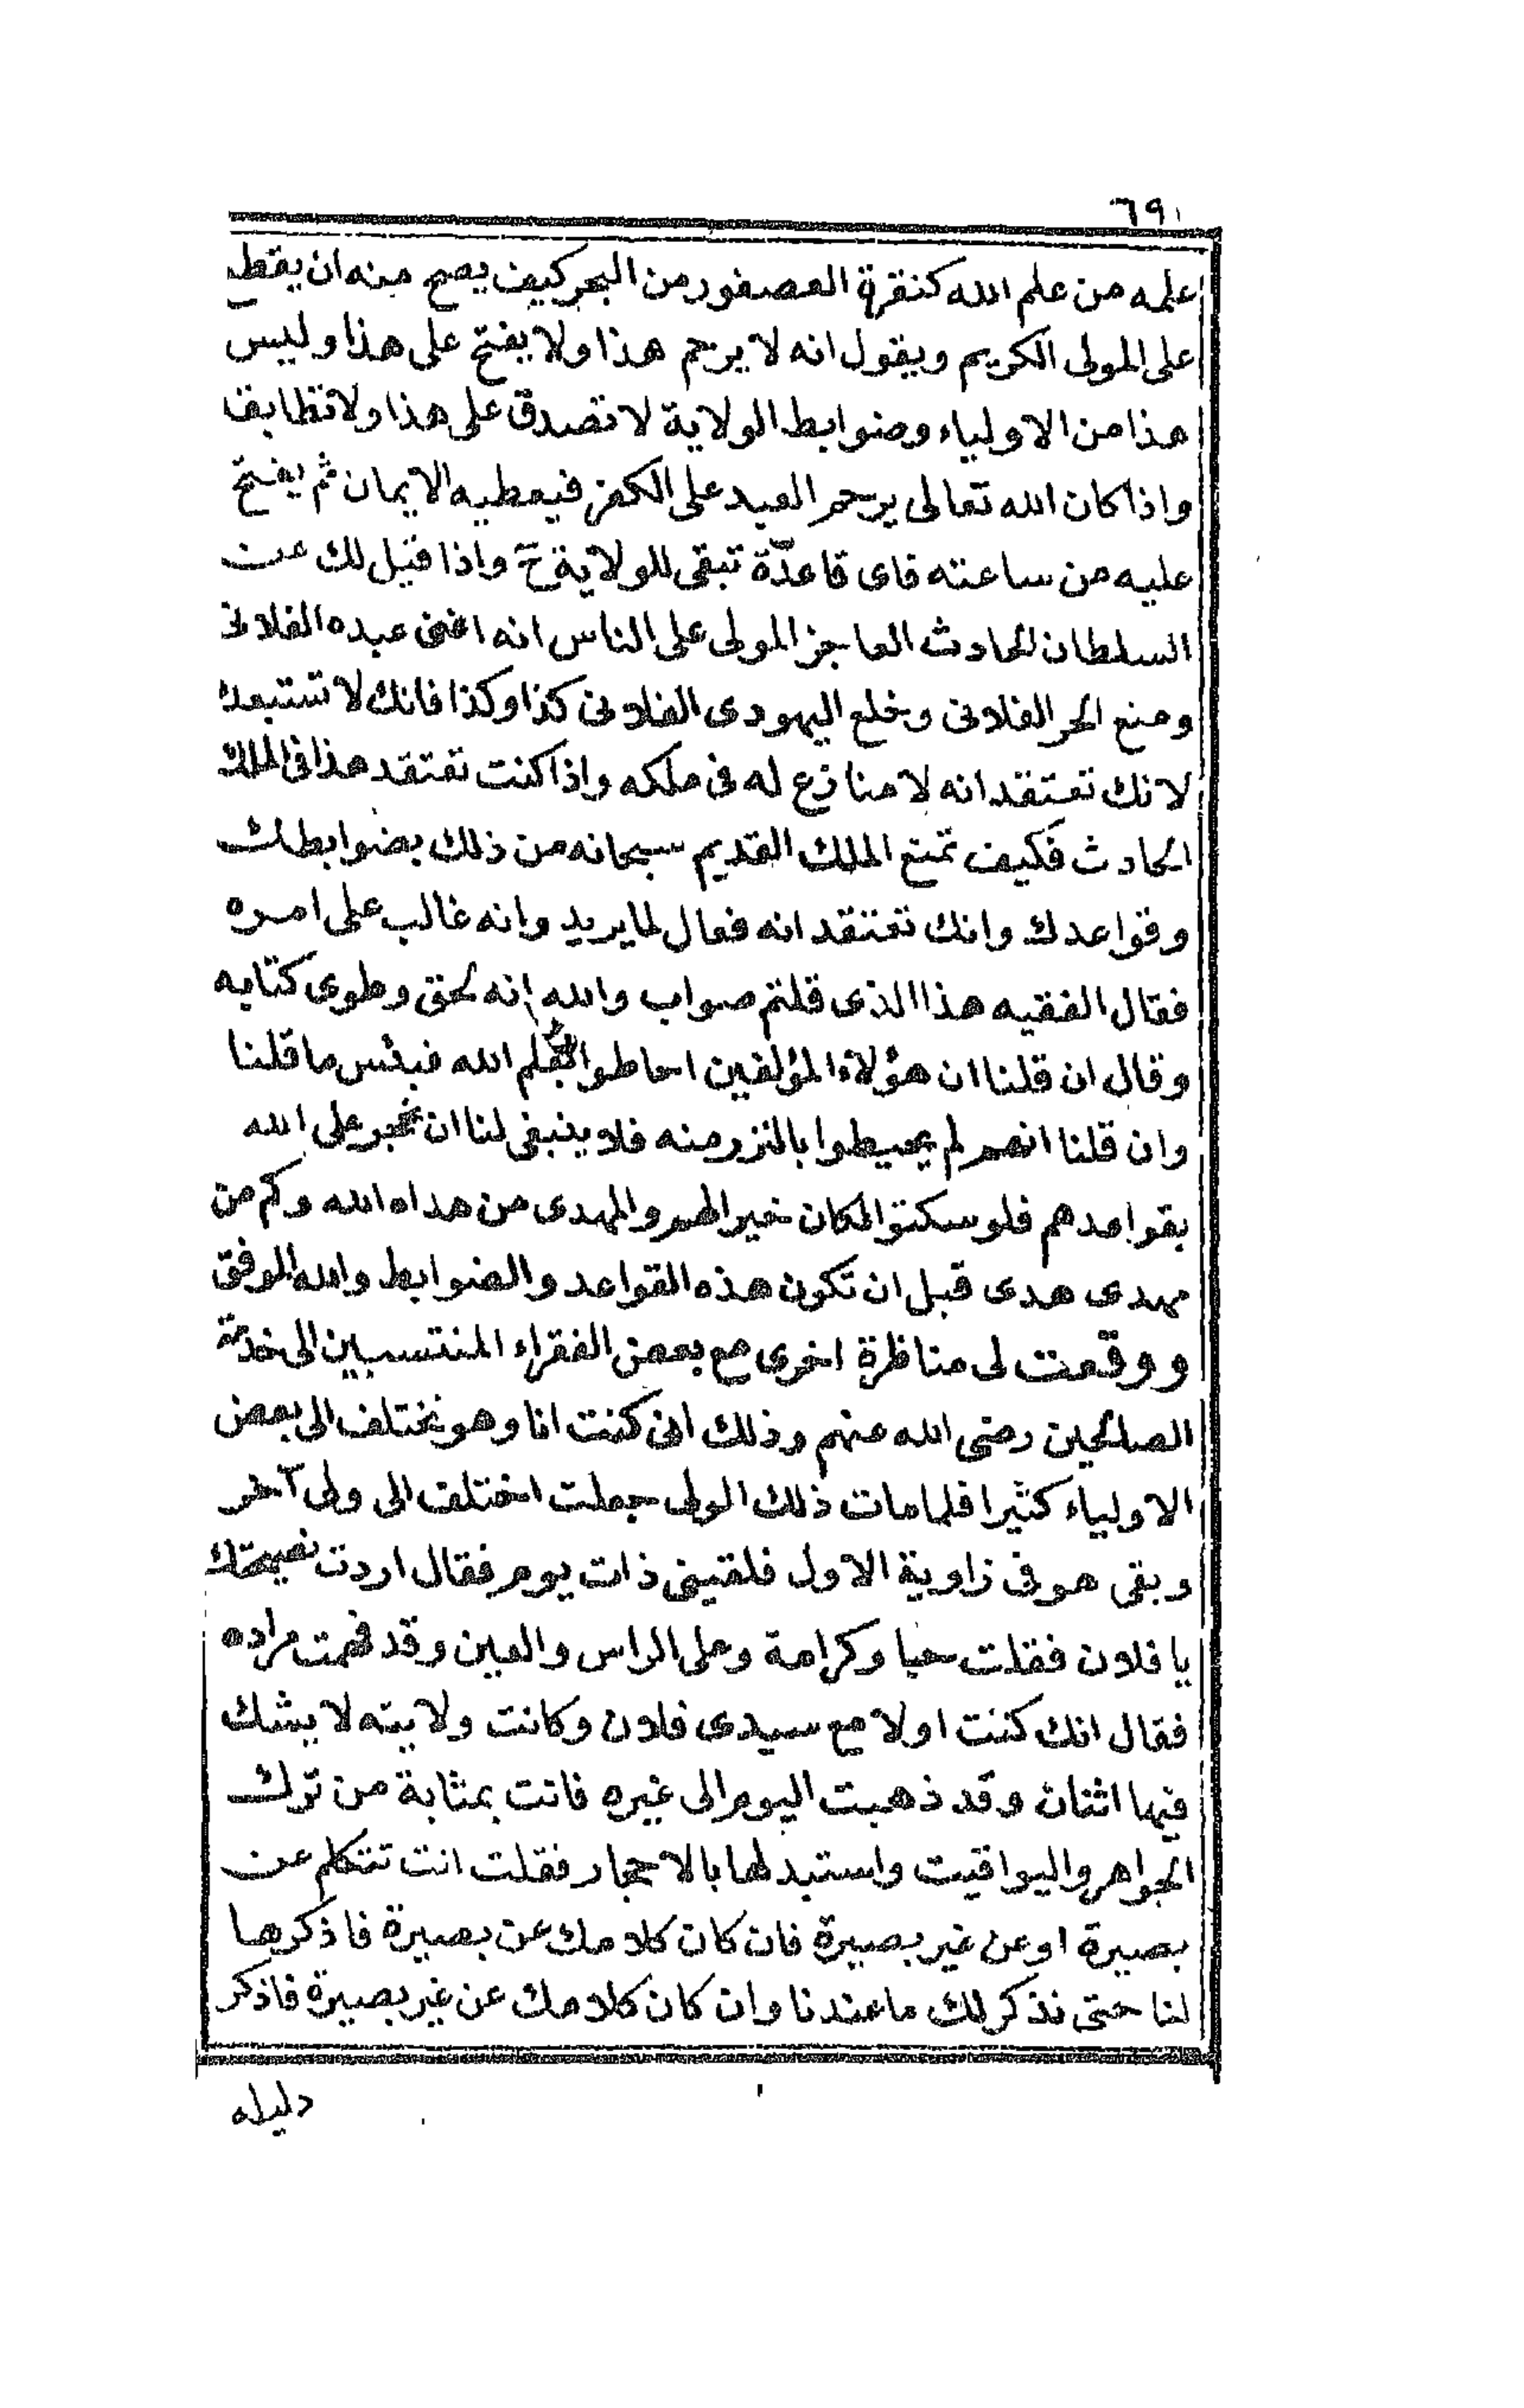 ٦٩
علمه من علم الله كنقرة العصفور من البحر كيف يصح منه ان يقطع
على المولى الكريم ويقول انه لا يرحم هذا ولا يفتح على هذا وليس
هذا من الاولياء وضوابط الولاية لا تصدق على هذا ولا تطابق
واذا كان الله تعالى يرحم العبد على الكفر فيعطيه الايمان ثم يفتح
عليه من ساعته فاى قاعدة تبقى للولاية ح واذا قيل لك عن
السلطان الحادث العاجز المولى على الناس انه اغنى عبده الفلانى
ومنع الحر الفلانى وخلع اليهودى الفلانى كذا وكذا فانك لا تستبعد
لانك تعتقد انه لا منازع له فى ملكه واذا كنت تعتقد هذا فى الملك
الحادث فكيف تمنع الملك القديم سبحانه من ذلك بضوابطك
وقواعدك وانك تعتقد انه فعال لما يريد وانه غالب على امره
فقال الفقيه هذا الذى قلتم صواب والله انه لحق وطوى كتابه
وقال ان قلنا ان هؤلاء المؤلفين احاطوا بعلم الله فبئس ما قلنا
وان قلنا انهم لم يحيطوا بالنزر منه فلا ينبغى لنا ان نحجر على الله
بقواعدهم فلو سكتوا لكان خيرا لهم والمهدى من هداه الله وكم من
مهدى هدى قبل ان تكون هذه القواعد والضوابط والله الموفق
ووقعت لى مناظرة اخرى مع بعض الفقراء المنتسبين الى خدمة
الصالحين رضى الله عنهم وذلك انى كنت انا وهو نختلف الى بعض
الاولياء كثيرا فلما مات ذلك الولى جعلت اختلف الى ولى آخر
وبقى هو فى زاوية الاول فلقينى ذات يوم فقال اردت نصيحتك
يا فلان فقلت حبا وكرامة وعلى الراس والعين وقد فهمت مراده
فقال انك كنت اولا مع سيدى فلان وكانت ولايته لا يشك
فيها اثنان وقد ذهبت اليوم الى غيره فانت بمثابة من ترك
الجواهر واليواقيت واستبدلها بالاحجار فقلت انت تتكلم عن
بصيرة او عن غير بصيرة فان كان كلامك عن بصيرة فاذكرها
لنا حتى نذكر لك ما عندنا وان كان كلامك عن غير بصيرة فاذكر
دليله